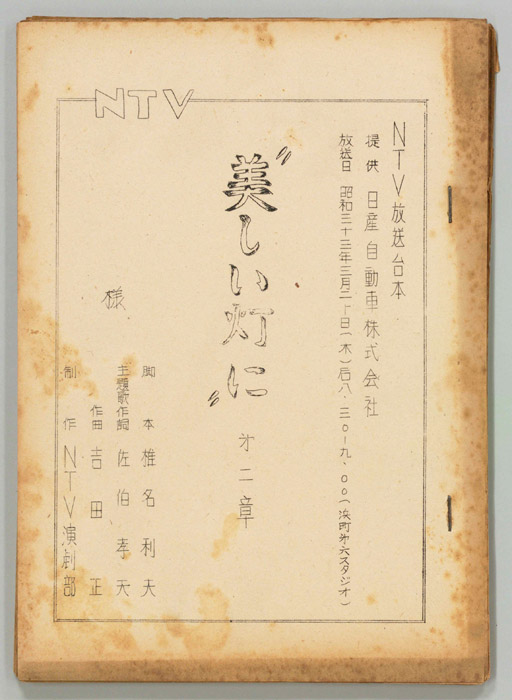 NTV
NTV放送台本
提供 日産自動車株式会社
放送日 昭和三十三年三月二十日(木)后八.三〇-九.〇〇(浜町㐧六スタジオ)
"美しい灯に" 㐧二章
様
脚本 椎名利夫
主題歌作詞 佐伯孝夫
作曲 吉田正
制作 NTV演劇部